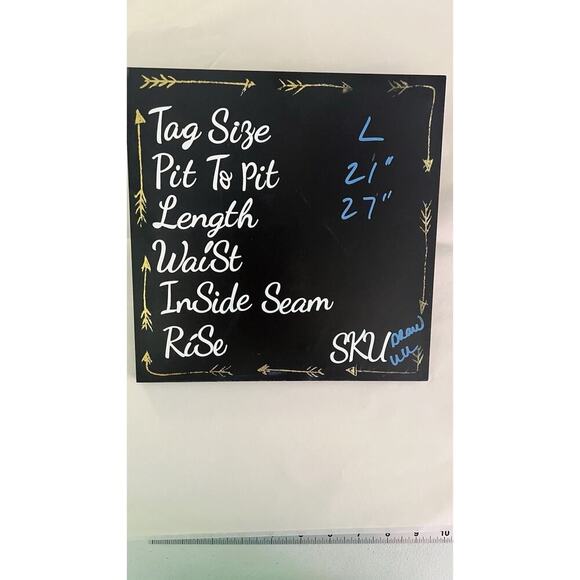 Tag Size L
Pit To Pit 21"
Length 27"
WaiSt
InSide Seam
RiSe SKU
5 6 7 8 9 10